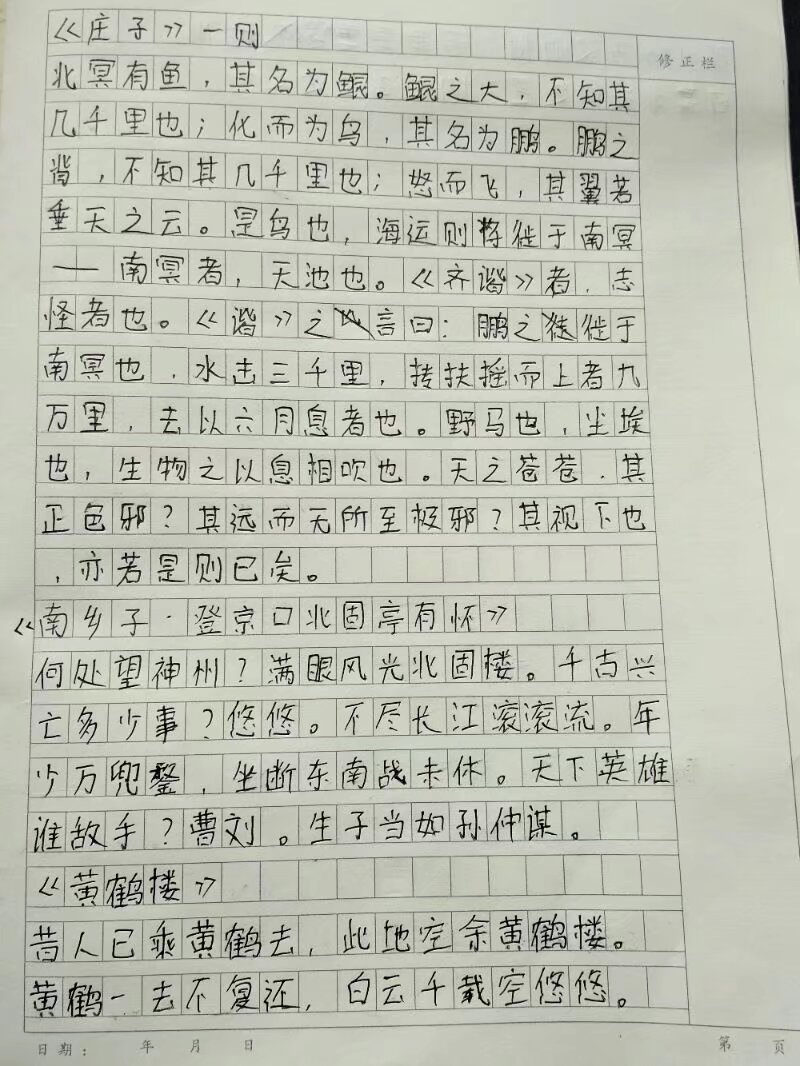 《庄子》一则
修正栏
北冥有鱼，其名为鲲。鲲之大，不知其
几千里也；化而为鸟，其名为鹏。鹏之
背，不知其几千里也；怒而飞，其翼若
垂天之云。是鸟也，海运则将徙于南冥
——南冥者，天池也。《齐谐》者，志
怪者也。《谐》之言曰：鹏之徙于
南冥也，水击三千里，抟扶摇而上者九
万里，去以六月息者也。野马也，尘埃
也，生物之以息相吹也。天之苍苍，其
正色邪？其远而无所至极邪？其视下也
，亦若是则已矣。
《南乡子·登京口北固亭有怀》
何处望神州？满眼风光北固楼。千古兴
亡多少事？悠悠。不尽长江滚滚流。年
少万兜鍪，坐断东南战未休。天下英雄
谁敌手？曹刘。生子当如孙仲谋。
《黄鹤楼》
昔人已乘黄鹤去，此地空余黄鹤楼。
黄鹤一去不复还，白云千载空悠悠。
日期： 年 月 日 第 页